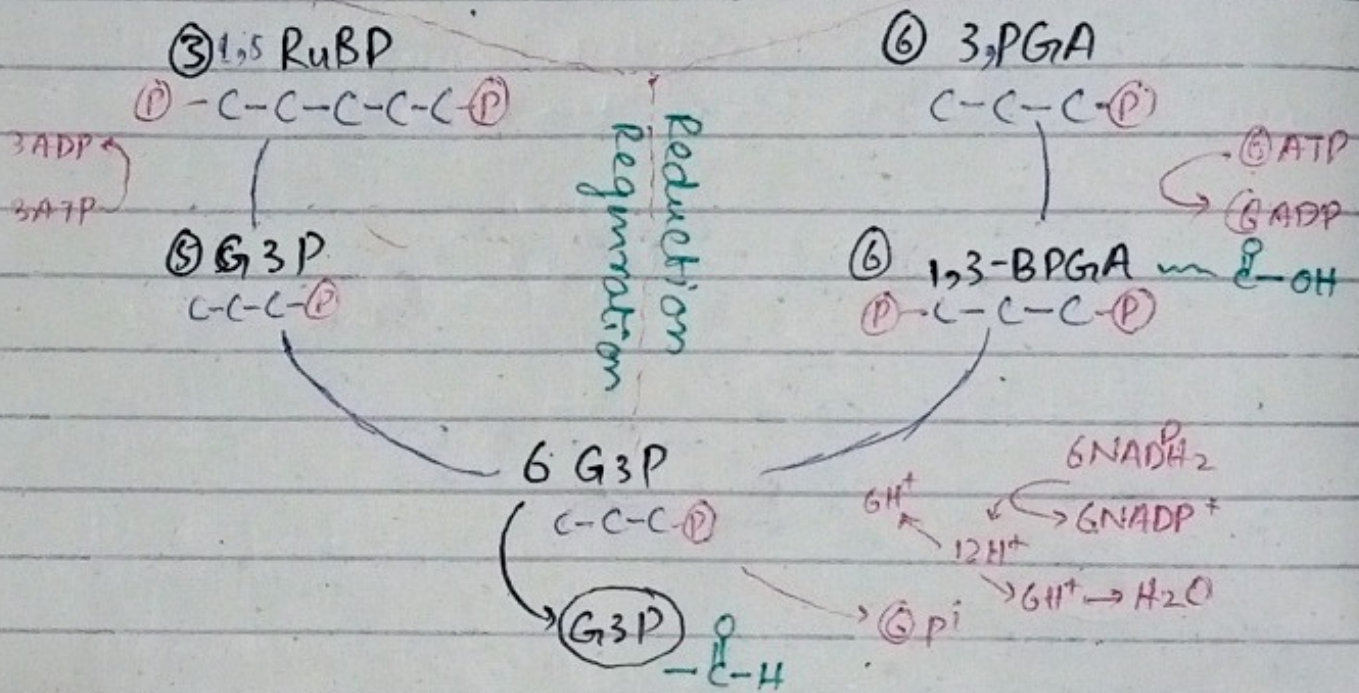 ③ 1,5 RuBP
Ⓟ-C-C-C-C-C-Ⓟ
3ADP
3ATP
⑤ G3P
C-C-C-Ⓟ
Reduction
Regnration
⑥ 3,PGA
C-C-C-Ⓟ
⑥ATP
⑥ADP
⑥ 1,3-BPGA
O
C-OH
Ⓟ-C-C-C-Ⓟ
6 G3P
C-C-C-Ⓟ
6NADPH2
6NADP+
6H+
12H+
6H+ → H2O
⑥ Pi
G3P
O
-C-H